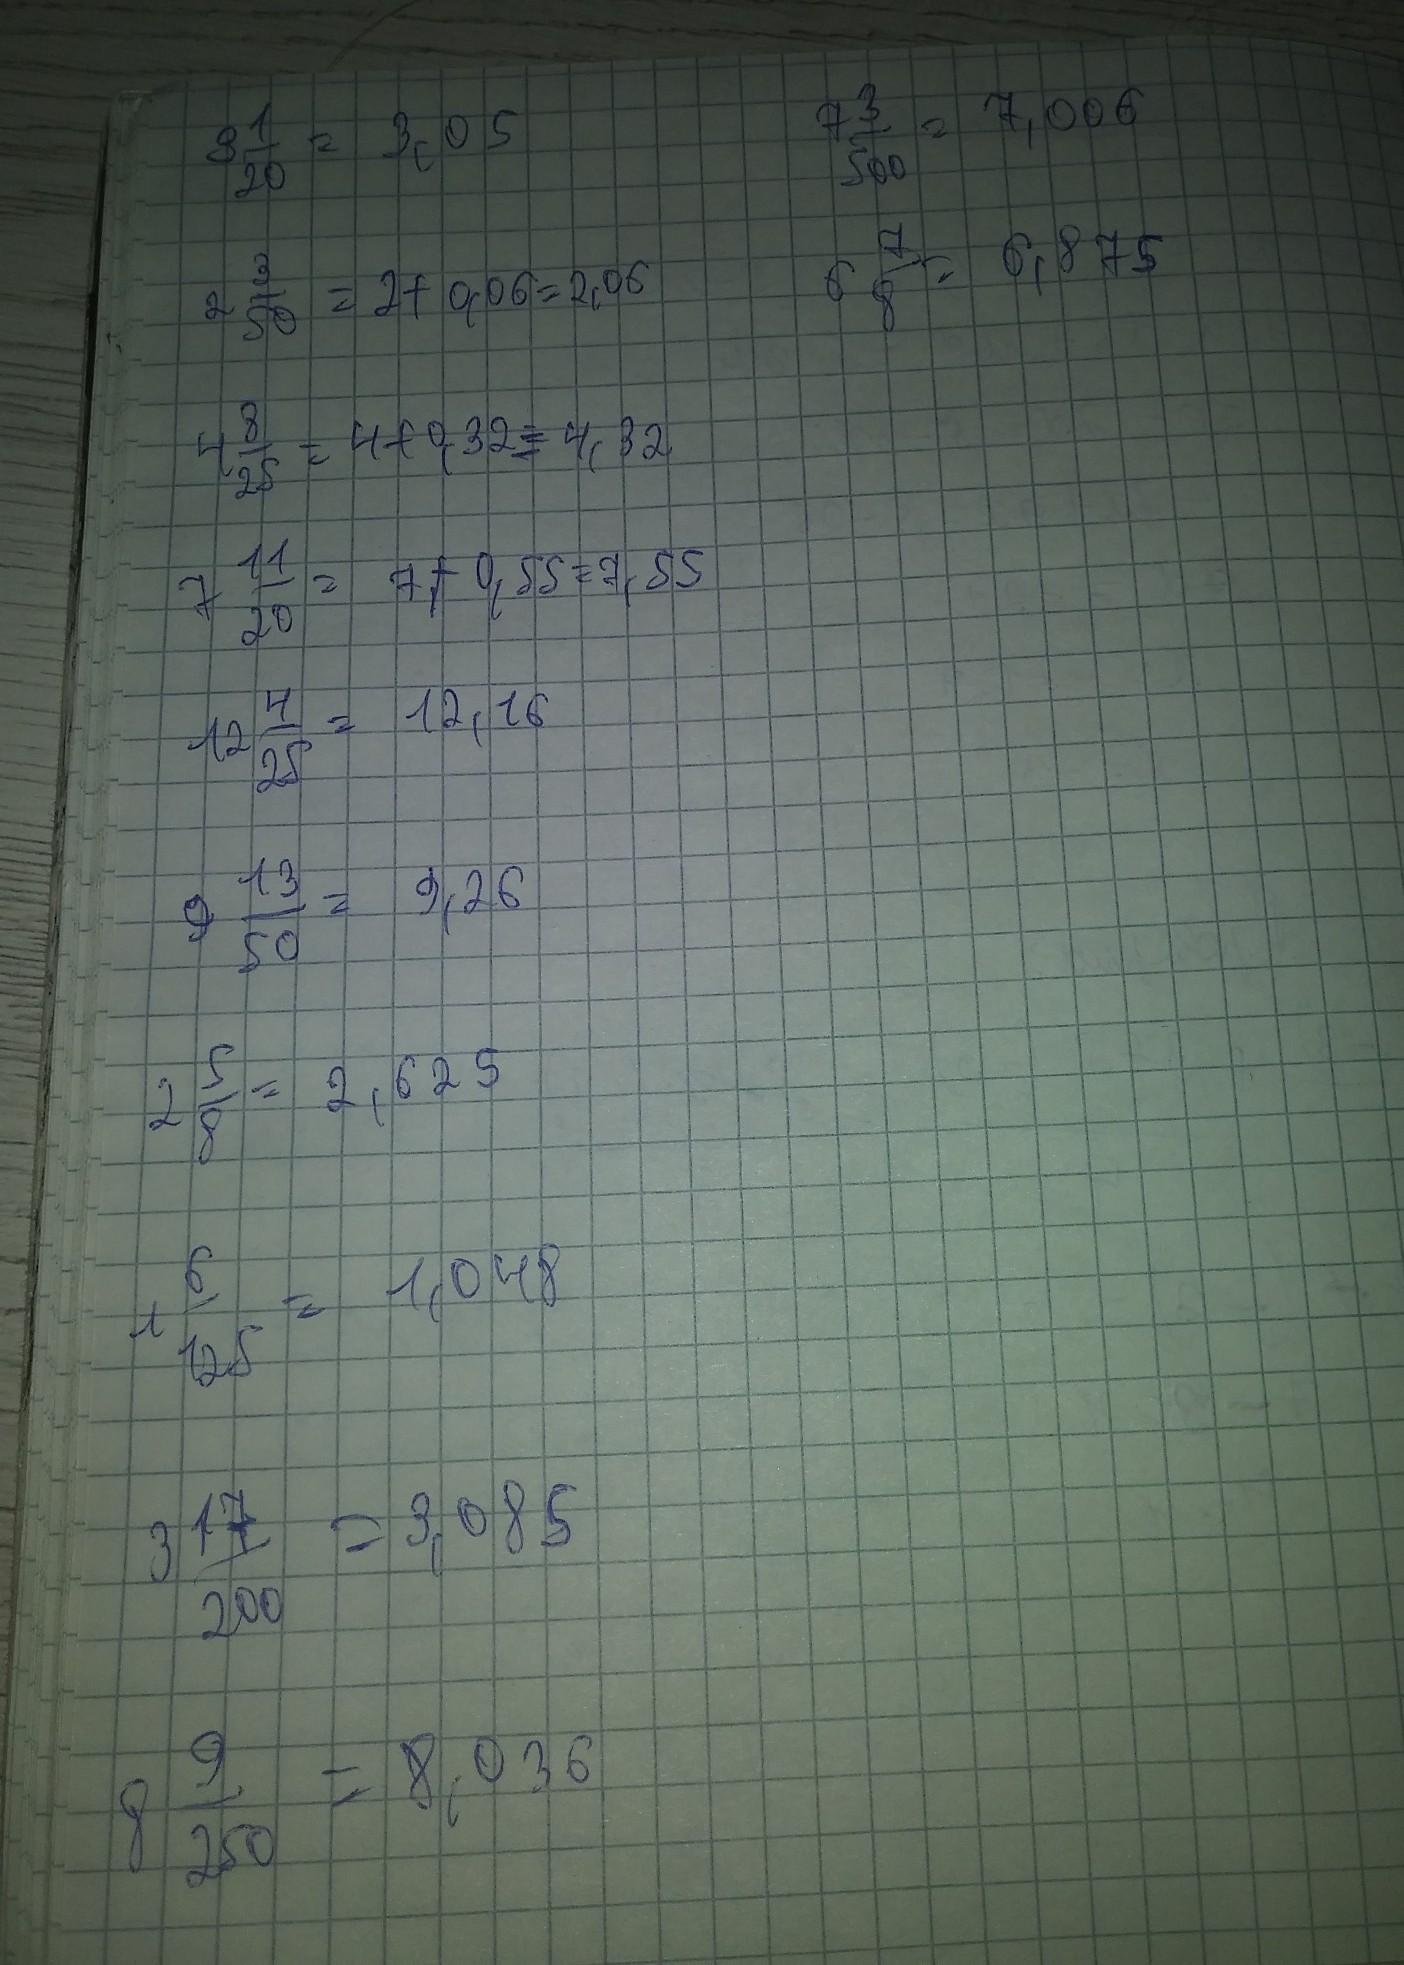 3 1/20 = 3,05
2 3/50 = 2+0,06=2,06
4 8/25 = 4+0,32=4,32
7 11/20 = 7+0,55=7,55
12 4/25 = 12,16
9 13/50 = 9,26
2 5/8 = 2,625
1 6/125 = 1,048
3 17/200 = 3,085
8 9/250 = 8,036
7 3/500 = 7,006
6 7/8 = 6,875